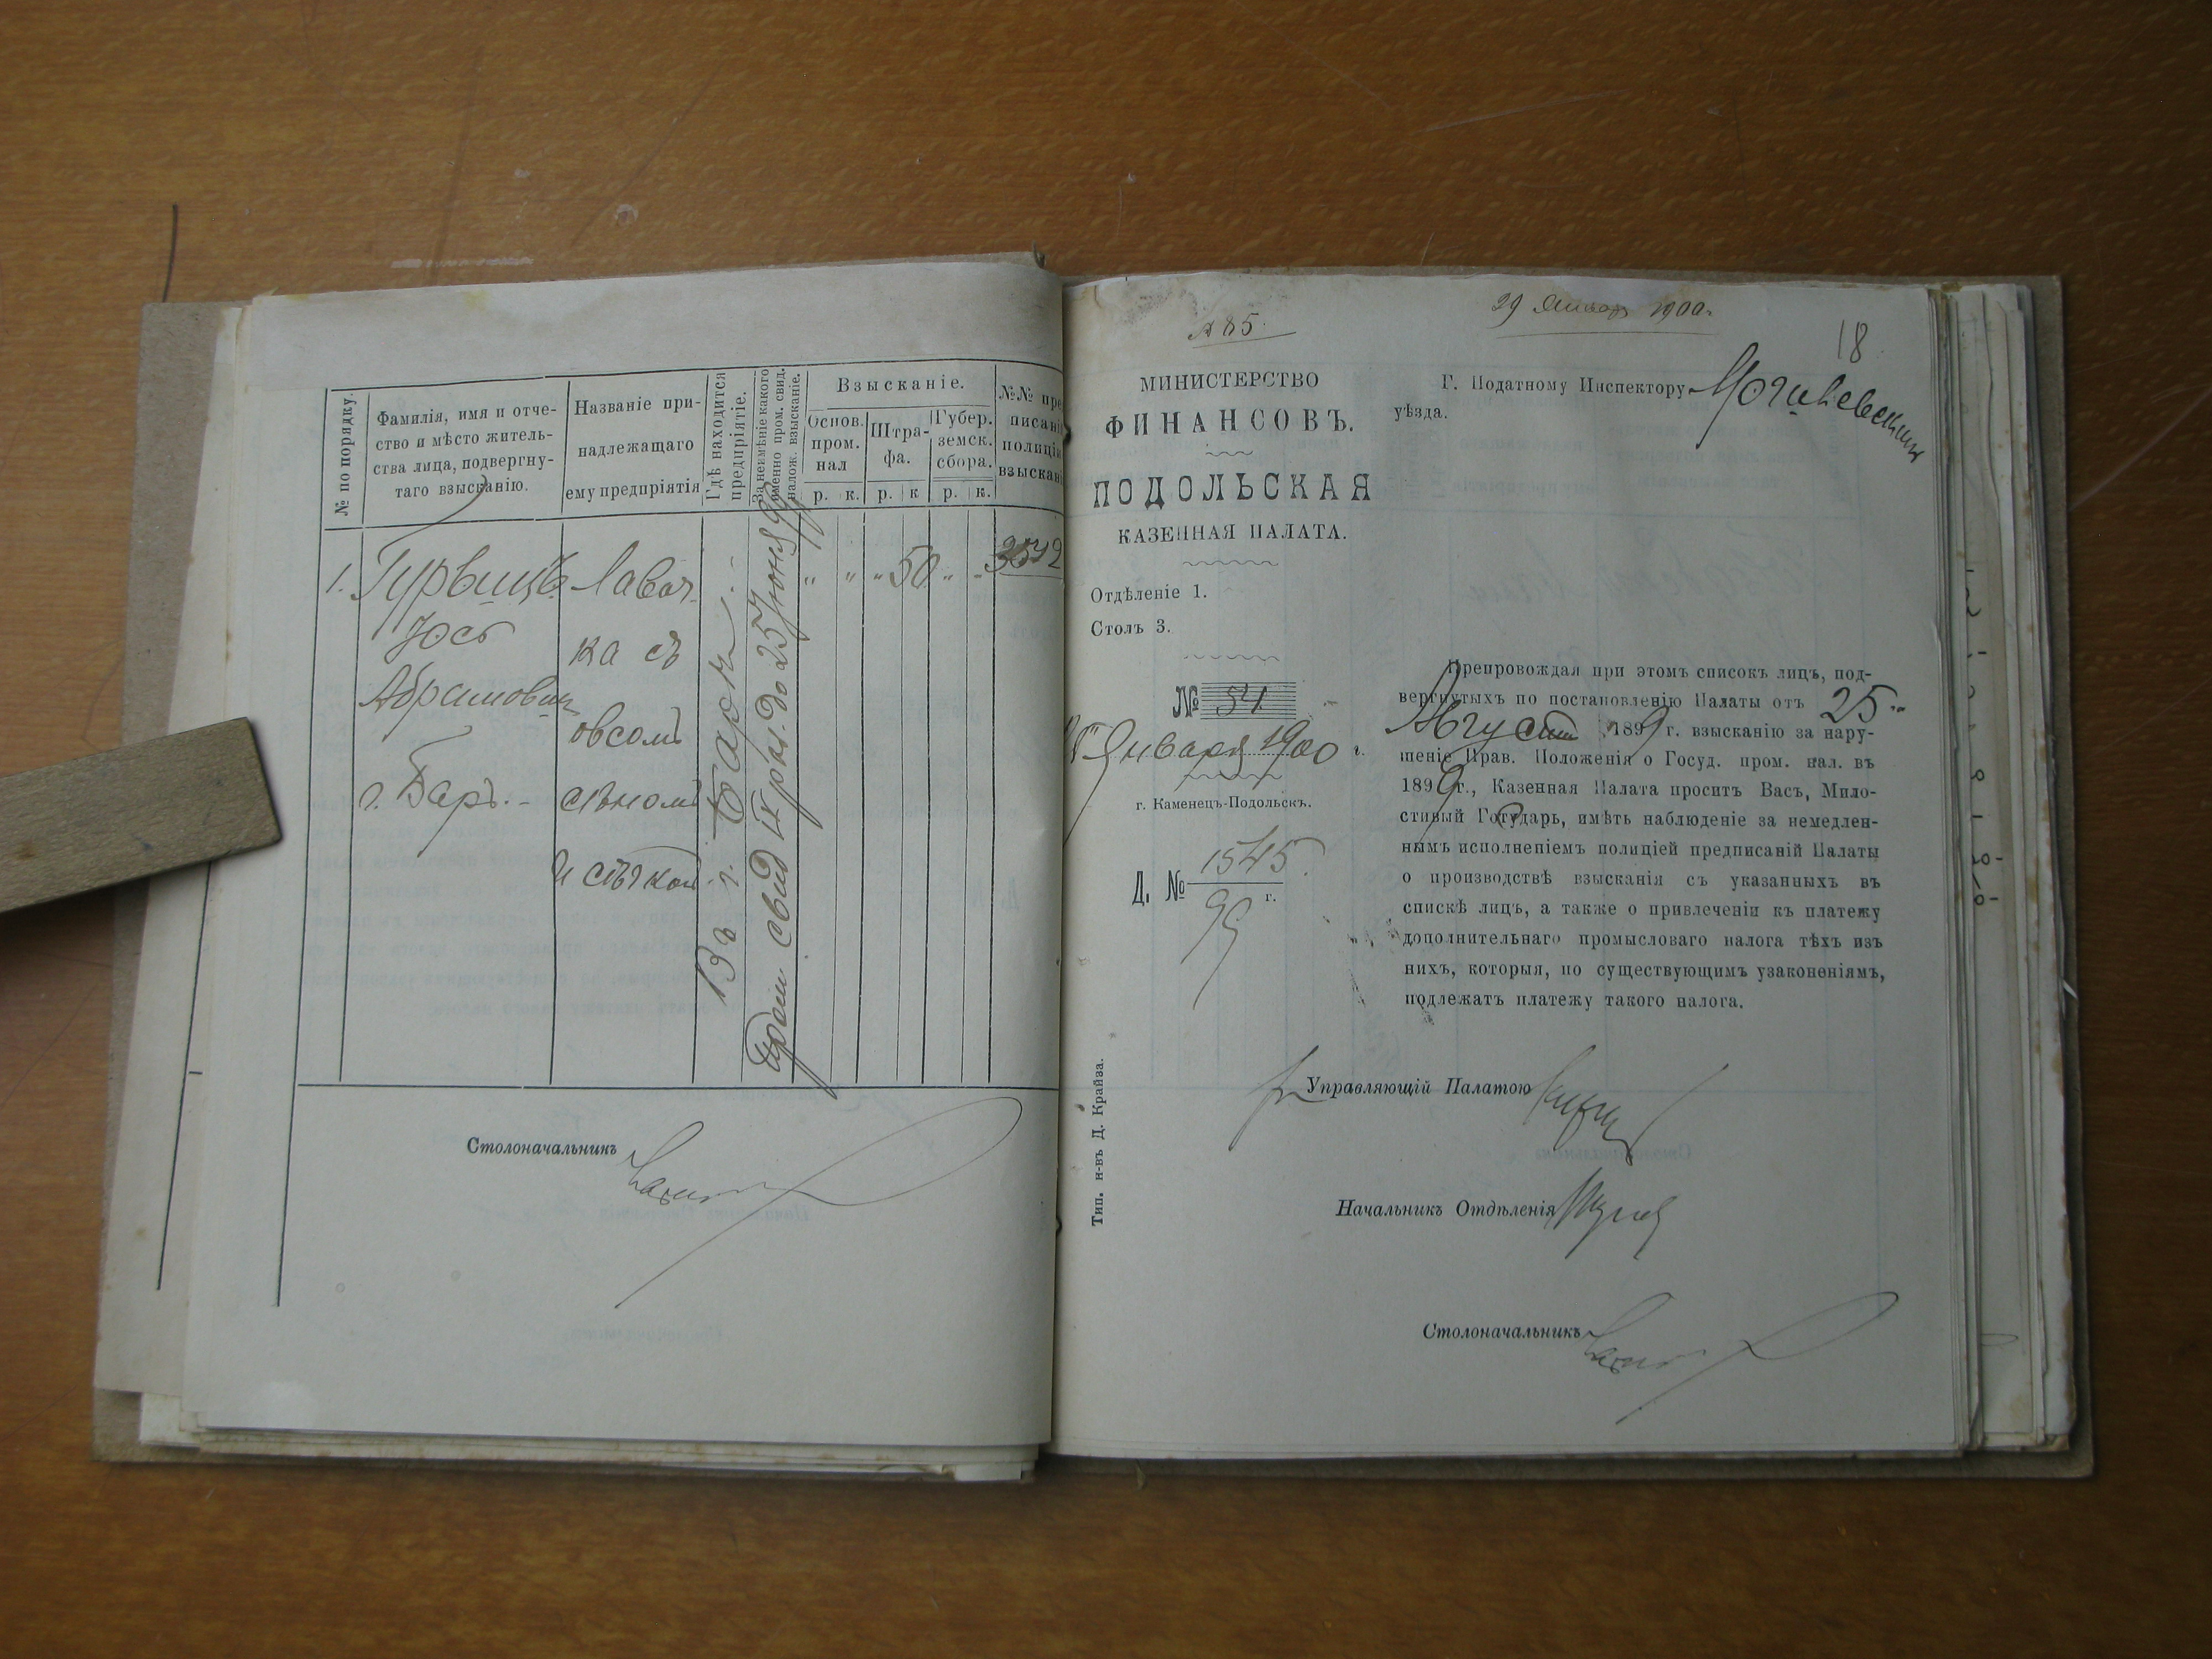 № по порядку.
Фамилія, имя и отче-
ство и мѣсто житель-
ства лица, подвергну-
таго взысканію.
Названіе при-
надлежащаго
ему предпріятія
Гдѣ находится
предпріятіе.
За неимѣніе какого
именно пром. свид.
налож. взысканіе.
Взысканіе.
Основ.
пром.
нал
Штра-
фа.
Губер.
земск.
сбора.
р. к. р. к р. к.
№№ пре
писані
полиціи
взыскан
1. Гурвицъ
Юсь
Абрамович
г. Баръ.-
Лавоч-
ка съ
овсомъ
сѣномъ
и сѣчкой.
Въ г. Баръ.
Пром свид IV разр. до 25 Июня
" " " 50 " "
Столоначальникъ
№ 85.
29 Января 1900 г.
18
МИНИСТЕРСТВО
ФИНАНСОВЪ.
ПОДОЛЬСКАЯ
КАЗЕННАЯ ПАЛАТА.
Отдѣленіе 1.
Столъ 3.
№ 54
Января 1900 г.
г. Каменецъ-Подольскъ.
Д. № 1545
99 г.
Тип. н-въ Д. Крайза.
Г. Податному Инспектору Могилевскаго
уѣзда.
Препровождая при этомъ списокъ лицъ, под-
вергнутыхъ по постановленію Палаты отъ 25
Августа 1899 г. взысканію за нару-
шеніе Прав. Положенія о Госуд. пром. нал. въ
1899 г., Казенная Палата проситъ Васъ, Мило-
стивый Государь, имѣть наблюденіе за немедлен-
нымъ исполненіемъ полиціей предписаній Палаты
о производствѣ взысканія съ указанныхъ въ
спискѣ лицъ, а также о привлеченіи къ платежу
дополнительнаго промысловаго налога тѣхъ изъ
нихъ, которыя, по существующимъ узаконеніямъ,
подлежатъ платежу такого налога.
Управляющій Палатою
Начальникъ Отдѣленія
Столоначальникъ